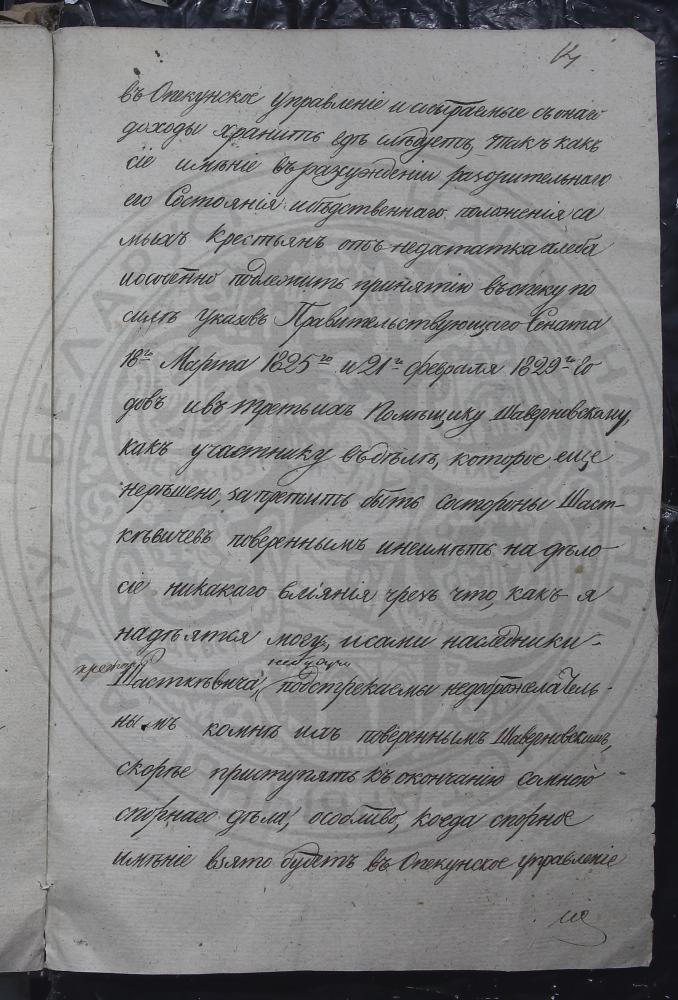 въ Опекунское управленіе и собираемые съ онаго
доходы хранить гдѣ слѣдуетъ, такъ какъ
сіе имѣніе въ разсужденіи разорительнаго
его Состоянія и бѣдственнаго положенія са
мыхъ крестьянъ отъ недостатка хлеба
и особенно подлежитъ принятію въ опеку по
силѣ указовъ Правительствующаго Сената
18го Марта 1825го и 21го февраля 1829го Го
довъ и въ третьихъ Помѣщику Шаверновскому,
какъ участнику въ дѣлѣ, которое еще
нерѣшено, запретить быть состороны Шаст-
кѣвичевъ повереннымъ инеимѣть на дѣло
сіе никакаго вліянія чрезъ что, какъ я
надѣятся могу, и сами наследники
Шасткѣвича, небудучи подстрекаемы недоброжелатель-
нымъ комнѣ ихъ повереннымъ Шаверновскимъ,
скорѣе приступятъ къ окончанію сомною
спорнаго дѣла, особливо, когда спорное
имѣніе взято будетъ въ Опекунское управленіе